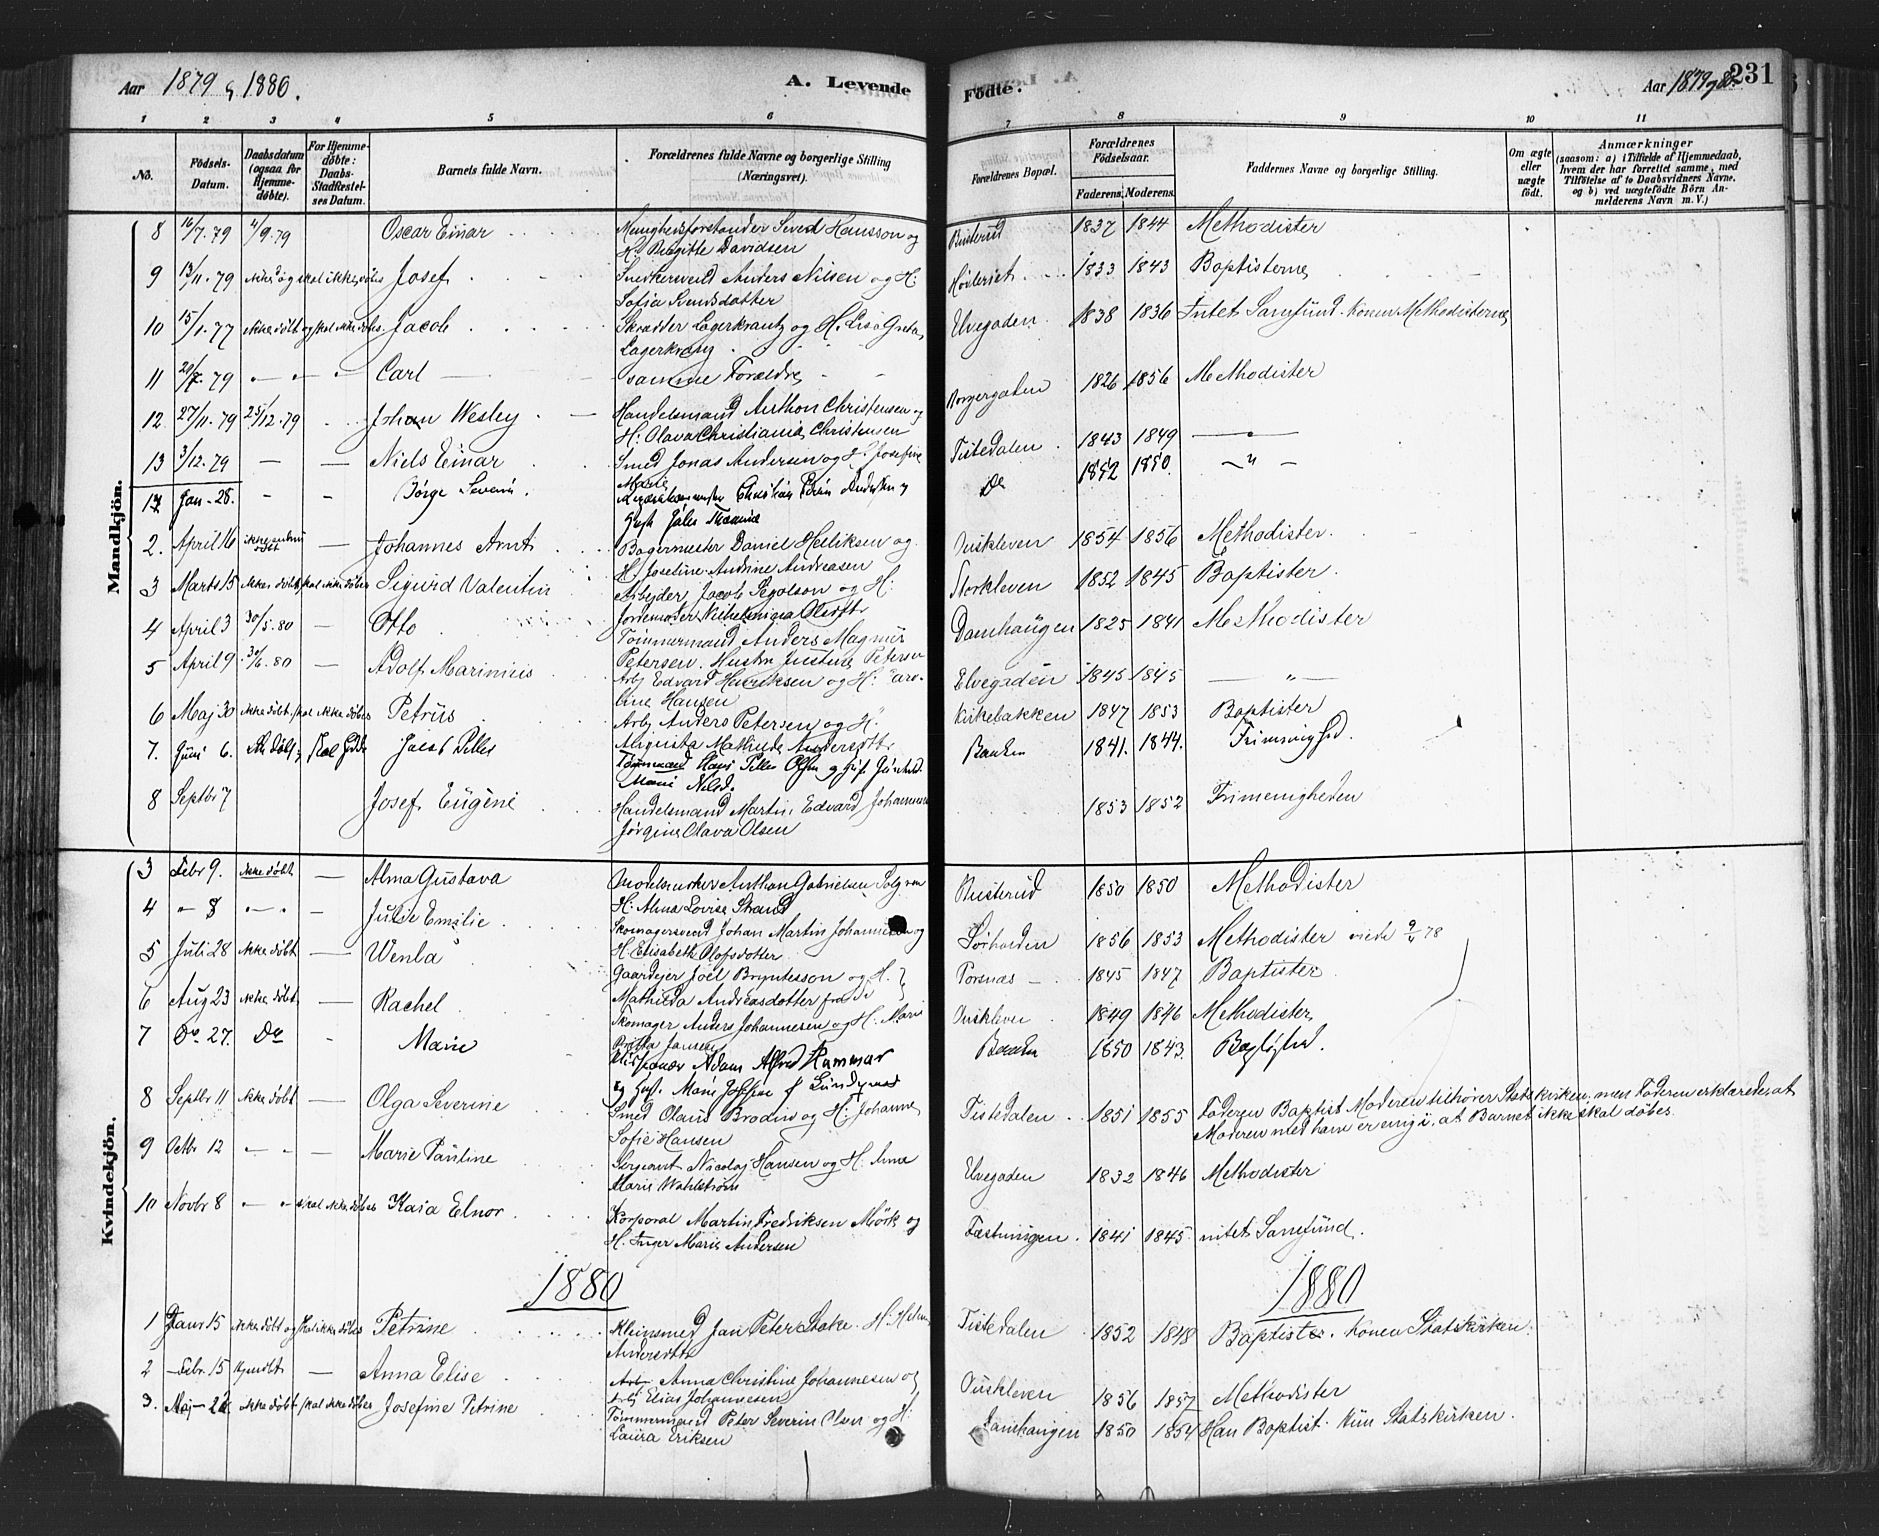 Aar 1879 & 1880.
A. Levende
1 2 3 4 5 6
No.
Fødsels-Datum.
Daabsdatum (ogsaa for Hjemme-døbte).
For Hjemme-døbte: Daabs-Stadfæstel-ses Datum.
Barnets fulde Navn.
Forældrenes fulde Navne og borgerlige Stilling (Næringsvei).
Mandkjøn.
8 16/7.79 11/9.79 Oscar Einar Menighedsforstander Severt Hansson og
H. Birgitte Davidsen
9 13/11.79 Josef Snedkersvend Anders Nilsen og H.
Sofia Svensdatter
10 15/1.77 ikke døbt og skal ikke døbes. Jacob Skrædder Lagerkrantz og H. Lisa Greta
Lagerkranz
11 79 Carl samme Forældre
12 27/11.79 25/12.79 Johan Wesley Handelsmand Anthon Christensen og
H. Olava Christiania Christensen
13 3/12.79 Niels Einar Smed Jonas Andersen og H. Josefine
Marie
Jan. 28. Børge Severin. Christian Andersen og
2. April 16 Johannes Arnt Bagermester Daniel Helliksen og
H. Josefine Andrine Andreasen
3 Marts 15 ikke døbt skal ikke døbes Sigurd Valentin Arbejder Jacob Segolson og H.
Jordemoder Vilhelmina Olsdtr
4 April 3 30/5.80 Otto Tømmermand Anders Magnus
Petersen. Hustru Justine Petersen
5 April 9 30/6.80 Adolf Marinius Arb. Edvard Henriksen og H. Caro-
line Hansen
6 Maj 30 ikke døbt. skal ikke døbes Petrus Arb. Anders Petersen og H.
Augusta Mathilde Andersdtr
7. Juni 6. Jacob Tømmermand Hans Olsen og
Marie Nilsd.
8 Septbr 7 Josef Eugene Handelsmand Martin Edvard Johannesen
Jørgine Olava Olsen
Kvindekjøn.
3 Febr 9. ikke døbt Alma Gustava Anthon Gabrielsen Solgren
H. Alma Lovise Strand
4 - 8 Julie Emilie Skomagersvend Johan Martin Johannesen og
H. Elisabeth Olofsdotter
5 Juli 28 ikke døbt Wenla Gaardejer Joel Bryntesson og H.
Mathilda Andreasdotter fra
6 Aug 23 ikke døbt Rachel Skomager Anders Johannesen og H. Maria
Britta Jansen
7 Do 27. Do Marie Missionær Adam Alfred Hammar
og Hust. Marie Josefine
8 Septbr 11 ikke døbt Olga Severine Smed Olaus Brodin og H. Johanne
Sofie Hansen
9 Octbr 12 Marie Pauline Sergeant Nicolaj Hansen og H. Anne
Marie Wahlstrøm
10 Novbr 8 skal ikke døbes Kaia Elnor Korporal Martin Fredriksen Mørk og
H. Inger Marie Andersen
1880
1 Januar 15 ikke døbt og skal ikke døbes Petrine Kleinsmed Jan Peter Stake. H. Helena
Andersdtr
2 Febr. 15 Hjemdbt Anna Elise Anna Christine Johannesen og
Arb. Elias Johannesen
3. Maj 22 ikke døbt skal ikke døbes Josefine Petrine Tømmermand Peter Severin Olsen og H.
Laura Eriksen
Fødte.
Aar 1879 og 80.
231
7 8 9 10 11
Forældrenes Bopæl.
Forældrenes Fødselsaar.
Faderens. Moderens.
Faddernes Navne og borgerlige Stilling.
Om ægte eller uægte født.
Anmærkninger
(saasom: a) i Tilfælde af Hjemmedaab,
hvem der har forrettet samme, med
Tilføielse af to Daabsvidners Navne,
og b) ved uægtefødte Børn An-
melderens Navn m. V.)
Busterud 1837 1844 Methodister
1833 1843 Baptisterne
Elvegaden 1838 1836 Intet Samfund. Konen Methodisterne
Borgergaden 1826 1856 Methodister
Tistedalen 1843 1849
Do 1852 1850
Ouskleven 1854 1856 Methodister
Storkleven 1852 1845 Baptister
Damhaugen 1825 1841 Methodister
Elvegaden 1845 1845
Kirkebakken 1847 1853 Baptister
Banken 1841. 1844. Frimenighed.
1853 1852 Frimenigheden
Busterud 1850 1850 Methodister
Sørhalden 1856 1853 Methodister viede 78
Torsnæs 1845 1847 Baptister
Ouskleven 1849 1846 Methodister
Banken 1850 1843.
Tistedalen 1851 1855 Faderen Baptist Moderen tilhører Statskirken, men Faderen erklærede at
Moderen med ham er enig i, at Barnet ikke skal døbes.
Elvegaden 1832 1846 Methodister
Fæstningen 1841 1845 intet Samfund.
1880
Tistedalen 1852 1848 Baptister. Konen Statskirken.
Ouskleven 1856 1857 Methodister
Damhaugen 1850 1854 Han Baptist. Hun Statskirken.